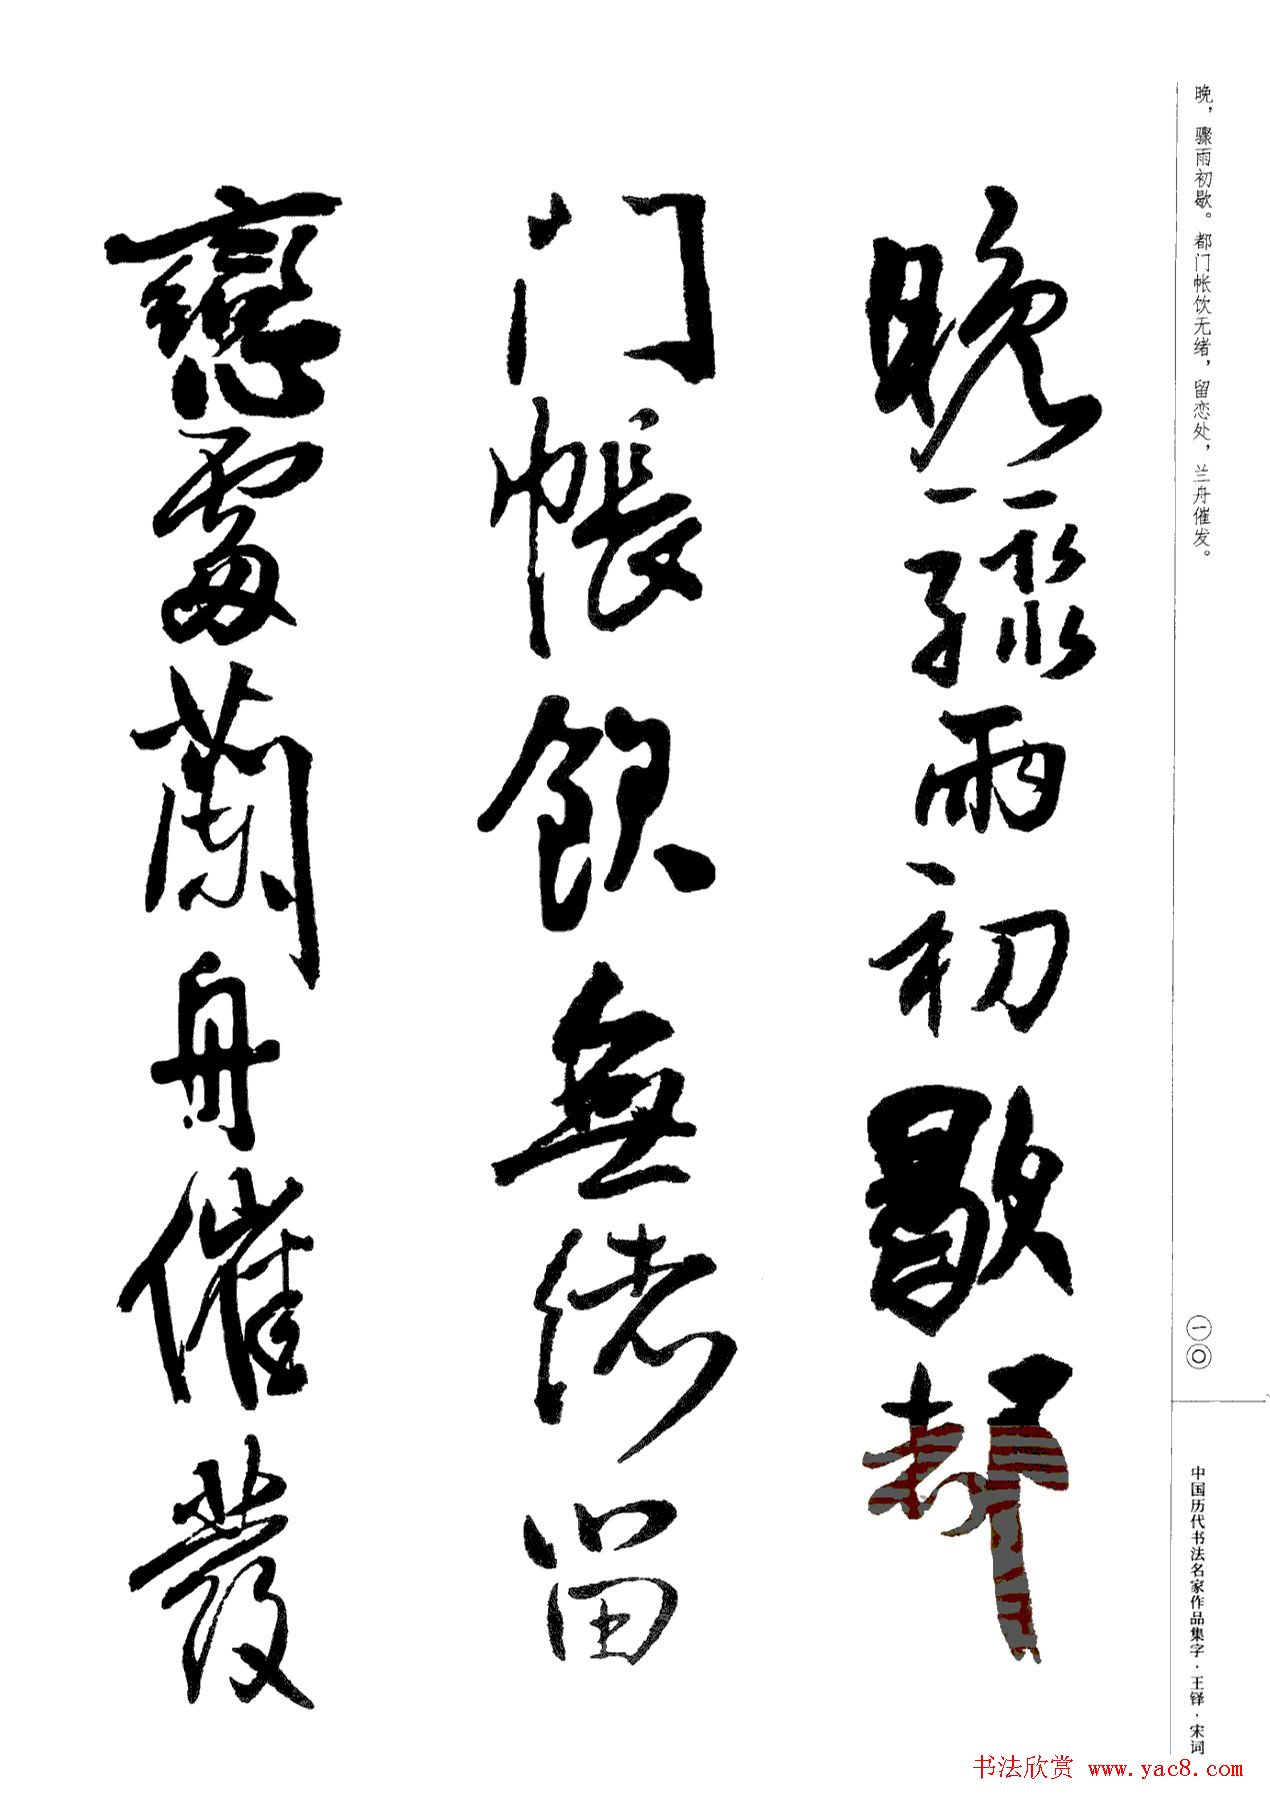 晚，骤雨初歇。都门帐饮无绪，留恋处，兰舟催发。
晚驟雨初歇都
门帳飲無緒留
戀處蘭舟催發
一〇
中国历代书法名家作品集字·王铎·宋词
书法欣赏 www.yac8.com